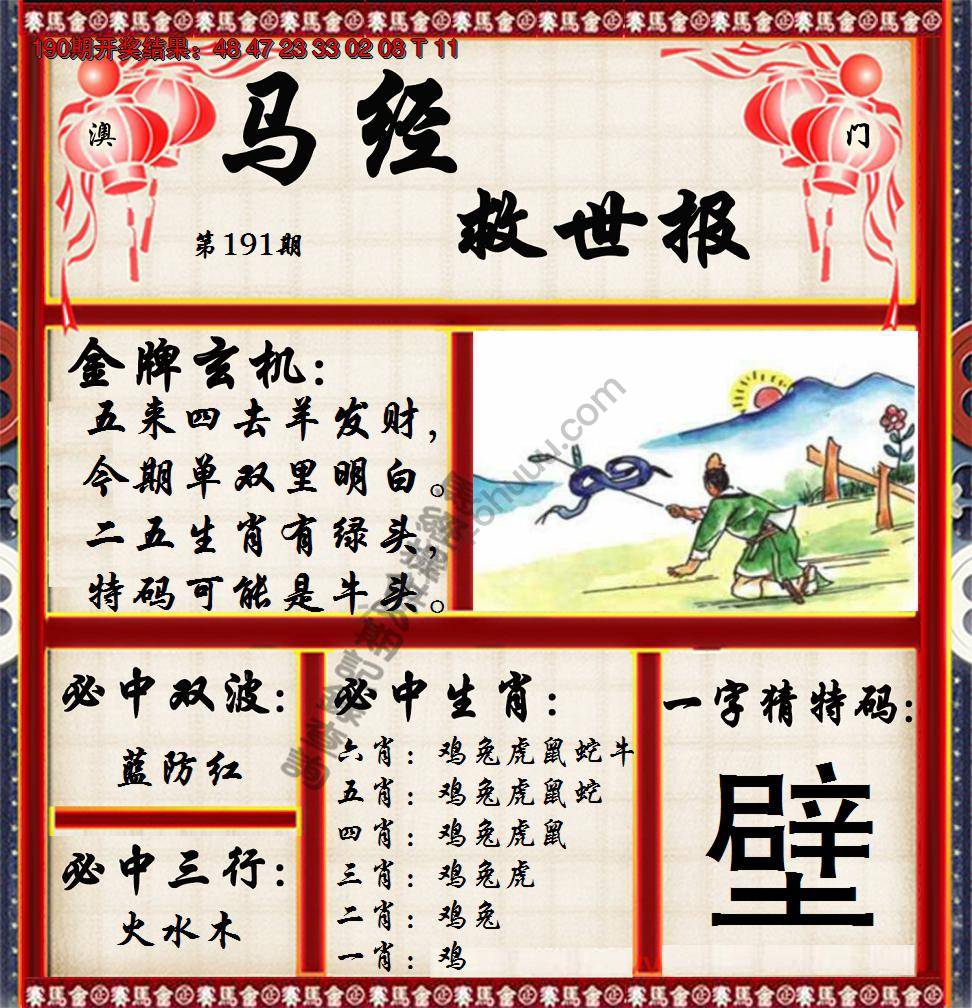 190期开奖结果：48 47 23 33 02 08 T 11
澳
门
马经
救世报
第191期
金牌玄机：
五来四去羊发财，
今期单双里明白。
二五生肖有绿头，
特码可能是牛头。
必中双波：
蓝防红
必中三行：
火水木
必中生肖：
六肖：鸡兔虎鼠蛇牛
五肖：鸡兔虎鼠蛇
四肖：鸡兔虎鼠
三肖：鸡兔虎
二肖：鸡兔
一肖：鸡
一字猜特码：
壁